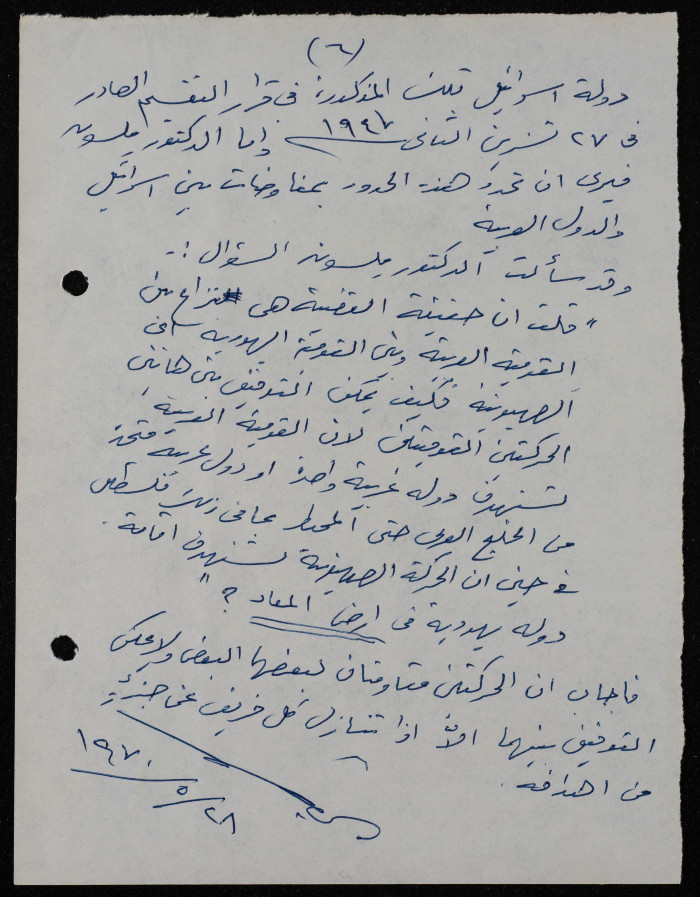 (٦)
دولة اسرائيل تلك المذكورة في قرار التقسيم الصادر
في ٢٧ تشرين الثاني ١٩٤٧ واما الدكتور ملسون
فيرى ان تحدد هذه الحدود بمفاوضات بين اسرائيل
والدول العربية
وقد سألت الدكتور ملسون السؤال :-
" قلت ان حقيقة القضية هي نزاع بين
القومية العربية وبين القومية اليهودية اي
الصهيونية فكيف يمكن التوفيق بين هاتين
الحركتين القوميتين لان القومية العربية
تستهدف دولة عربية واحدة او دول عربية متحدة
من الخليج العربي حتى المحيط بما في ذلك فلسطين
في حين ان الحركة الصهيونية تستهدف اقامة
دولة يهودية في ارض المعاد ؟ "
فاجاب ان الحركتين متاومتان لبعضها البعض ولا يمكن
التوفيق بينهما الاّ اذا تنازل كل فريق عن جزء
من اهدافه .
١٩٧٠/٥/٢٨